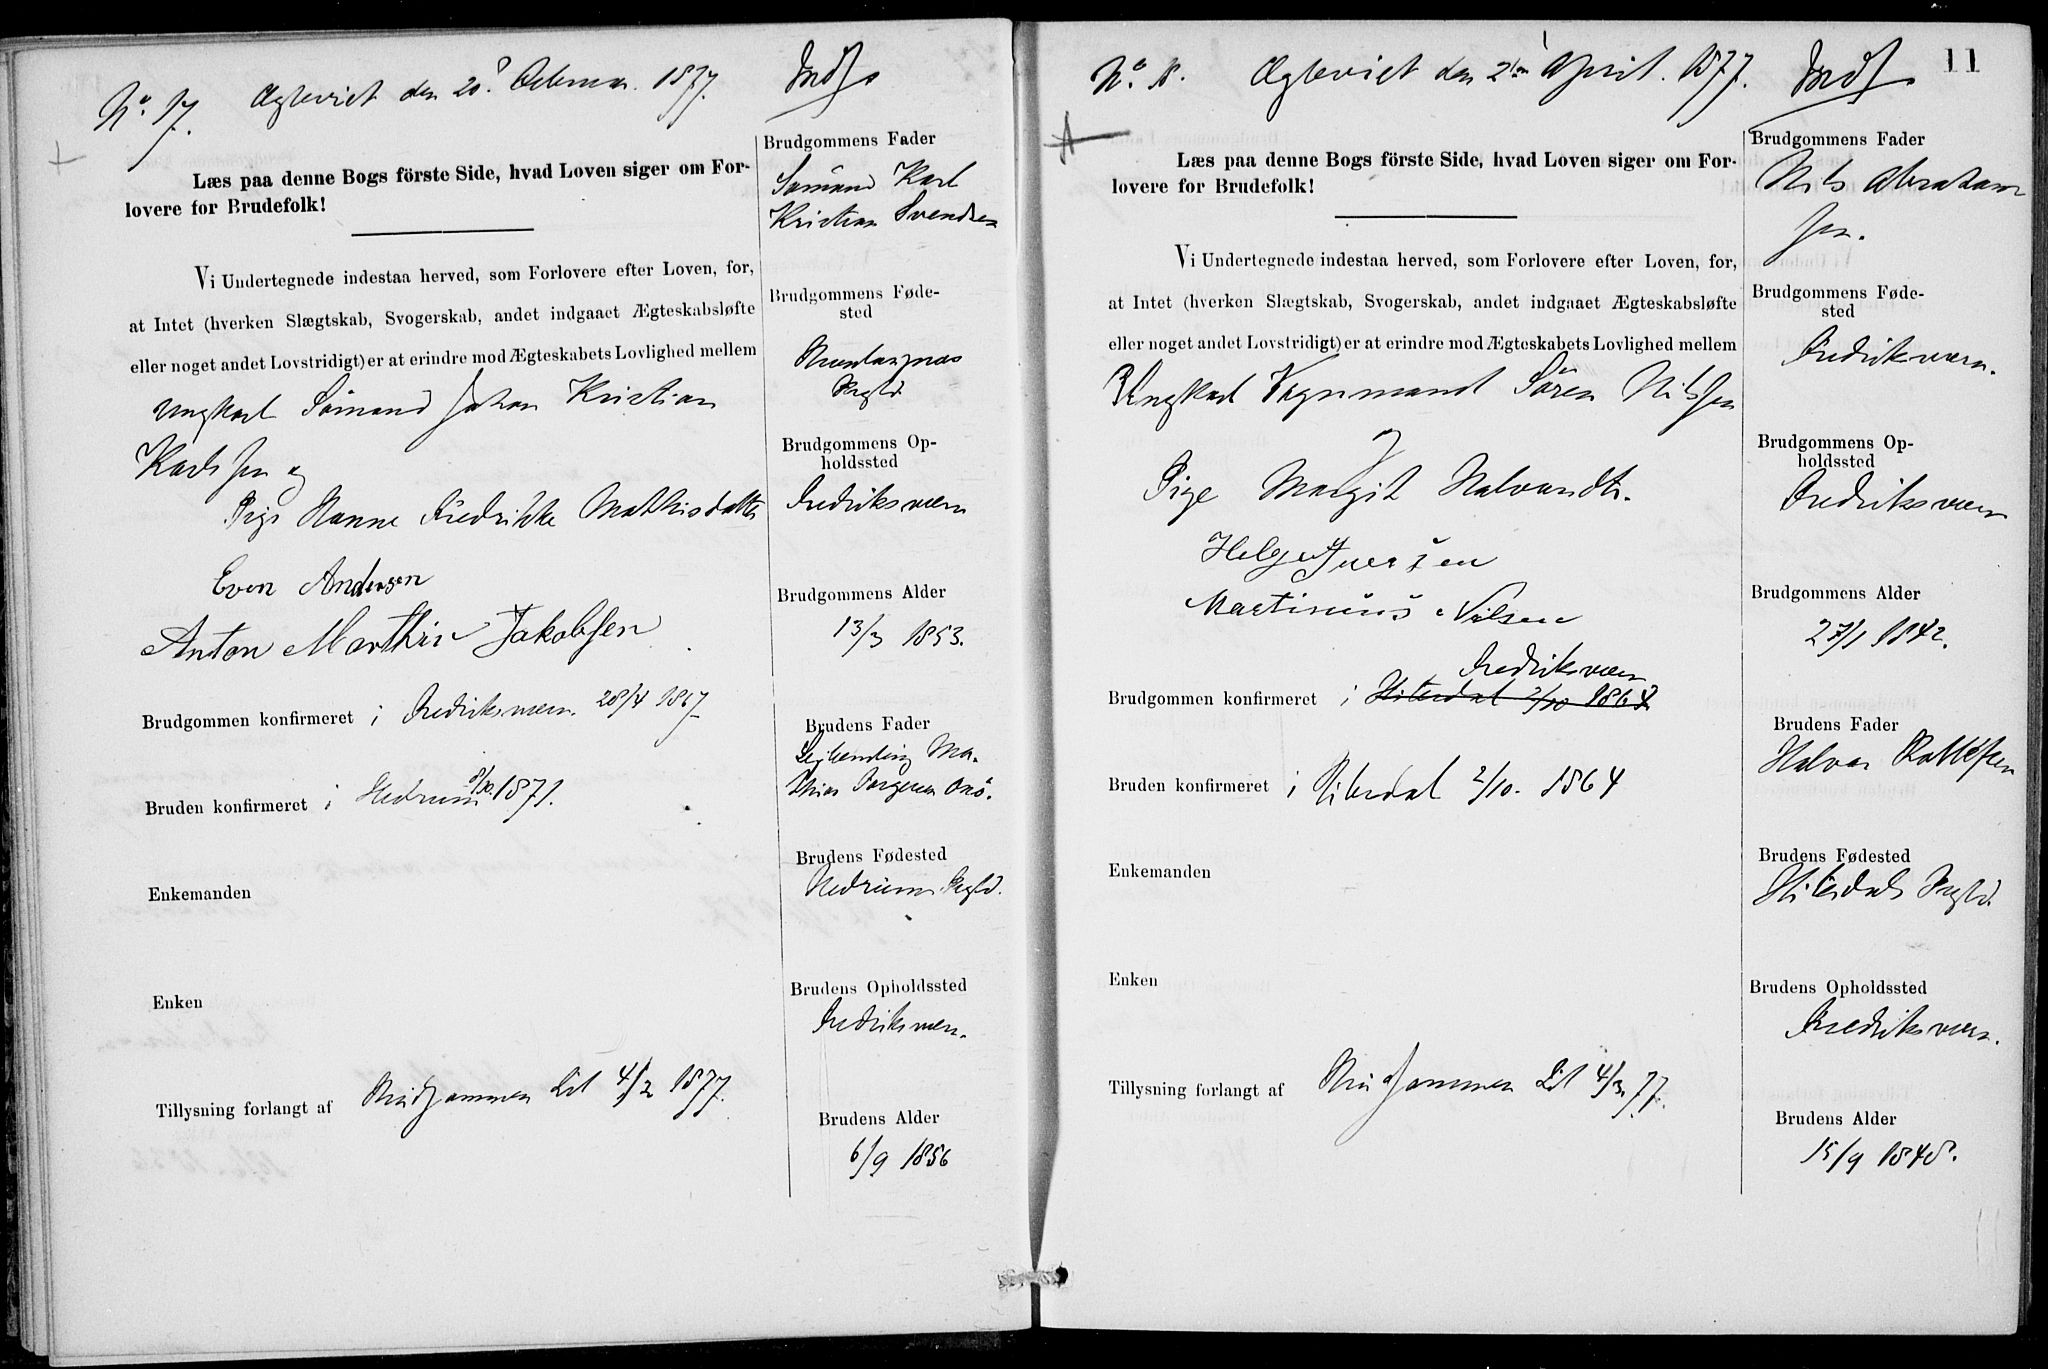 No 17. Ægteviet den 20. Februar. 1877. Indf.
Læs paa denne Bogs förste Side, hvad Loven siger om For-
lovere for Brudefolk!
Vi Undertegnede indestaa herved, som Forlovere efter Loven, for,
at Intet (hverken Slægtskab, Svogerskab, andet indgaaet Ægteskabsløfte
eller noget andet Lovstridigt) er at erindre mod Ægteskabets Lovlighed mellem
Ungkarl Sömand Johan Kristian
Karlsen og
Pige Hanne Fredrikke Mathisdatter
Even Andersen
Anton Marthin Jakobsen
Brudgommen konfirmeret i Fredriksværn. 28/4 1867
Bruden konfirmeret i Hedrum 8/10 1871.
Enkemanden
Enken
Tillysning forlangt af Brudgommen Lid 4/2 1877.
Brudgommens Fader
Sömand Karl
Kristian Svendsen
Brudgommens Føde-
sted
Prgld
Brudgommens Op-
holdssted
Fredriksværn
Brudgommens Alder
13/3 1853.
Brudens Fader
Leilending Ma-
thias Jörgensen
Brudens Fødested
Hedrum Prgld.
Brudens Opholdssted
Fredriksværn.
Brudens Alder
6/9 1856
11
No 18. Ægteviet den 2den April. 1877. Indf.
Læs paa denne Bogs förste Side, hvad Loven siger om For-
lovere for Brudefolk!
Vi Undertegnede indestaa herved, som Forlovere efter Loven, for,
at Intet (hverken Slægtskab, Svogerskab, andet indgaaet Ægteskabsløfte
eller noget andet Lovstridigt) er at erindre mod Ægteskabets Lovlighed mellem
Ungkarl Vognmand Sören Nilsen
og
Pige Margit Halvordtr.
Helge Iversen
Martinius Nilsen
Fredriksværn
Brudgommen konfirmeret i Hiterdal 2/10 1864
Bruden konfirmeret i Hiterdal 2/10. 1864
Enkemanden
Enken
Tillysning forlangt af Brudgommen Lid 4/3. 77.
Brudgommens Fader
Nils Abraham
sen.
Brudgommens Føde-
sted
Fredriksværn.
Brudgommens Op-
holdssted
Fredriksværn
Brudgommens Alder
27/1 1842.
Brudens Fader
Halvor
Brudens Fødested
Hiterdals Prgld.
Brudens Opholdssted
Fredriksværn.
Brudens Alder
15/9 1848.